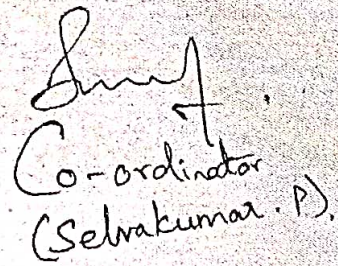 Co-ordinator
(Selvakumar. P).